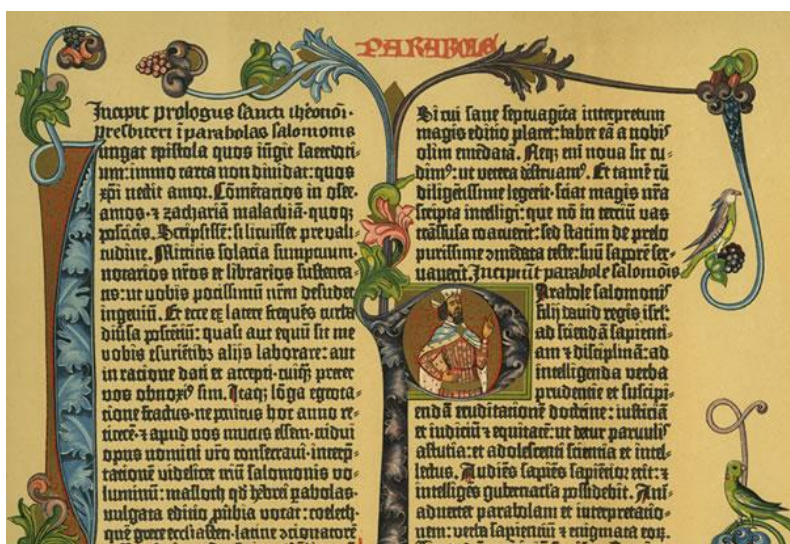 PARABOLE
Incipit prologus sancti iheronimi
presbiteri i parabolas salomonis
ungat epistola quos iugit sacerdoti-
um: immo carta non diuidat: quos
xpi nectit amor. Cōmētarios in osee.
amos. ⁊ zachariā malachiā. quoqꝫ
poscitis. Scripsissē: si licuisset pre vali-
tudine. Mittitis solacia sumptuum.
notarios nr̄os et librarios sustenta-
tis: ut uobis potissimū nr̄m desudet
ingeniū. Et ecce ex latere frequēs turba
diūsa poscētiū: quasi aut equū sit me
vobis esuriētibꝰ alijs laborare: aut
in racione dati et accepti. cuiqꝫ preter
vos obnoxiꝰ sim. Itaqꝫ lōga egrota-
tione fractus. ne penitus hoc anno re-
ticerē. ⁊ apud vos mutus essem. tridui
opus nomini vr̄o consecraui. interp̄-
tationē videlicet triū salomonis vo-
luminū: masloth qd̄ hebrei pabolas.
vulgata editio ꝓūbia vocat: coeleth.
quē grece ecclesiasten. latine ꝯcionatorē
Si cui sane septuagīta interpretum
magis editio placet: habet eā a nobiſ
olim emēdatā. Neqꝫ eni nova sic cu-
dimꝰ: ut vetera destruamꝰ. Et tamē cū
diligētissime legerit. sciat magis nr̄a
scripta intelligi: que nō in terciū vas
trāsfusa coacuerit: sed statim de prelo
purissime ꝯmēdata teste: suū saporē ser-
vauerīt. Incipiūt parabole salomōis
Parabole salomonis
filij dauid regis isrl̄:
ad sciendā sapienti-
am ⁊ disciplinā: ad
intelligenda verba
prudentie et suscipi-
endā eruditationē doctrine: iusticiā
et iudiciū ⁊ equitatē: ut detur paruuliſ
astutia: et adolescenti scientia et intel-
lectus. Audiēs sapiēs sapiētior erit: ⁊
intelligēs gubernacl̄a possidebit. Ani-
aduertet parabolam et interpretatio-
nem: verba sapientiū ⁊ enigmata eoꝝ.